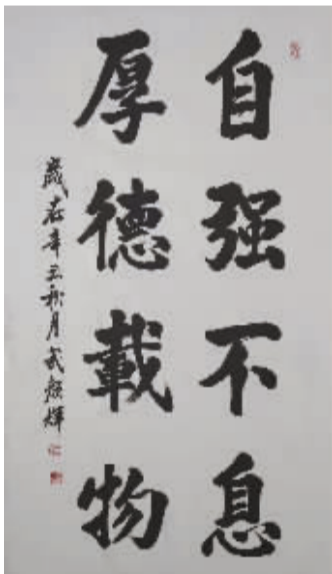 自强不息
厚德載物
歲在辛丑秋月武